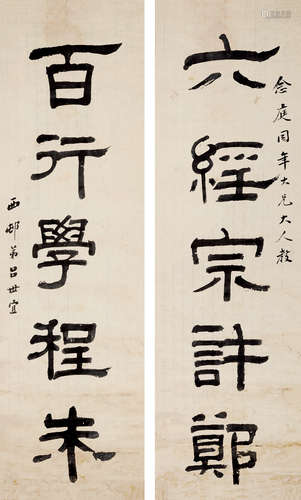 念庭同年大兄大人教
六經宗許鄭
百行學程朱
西邨弟呂世宜